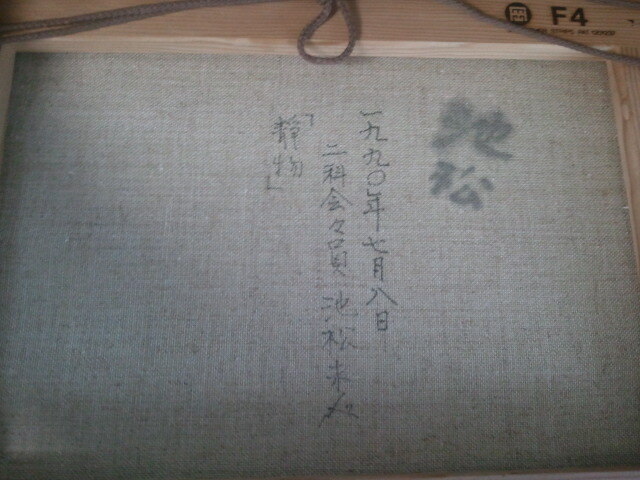 F4
池松
一九九〇年七月八日
二科会々員 池松
「静物」